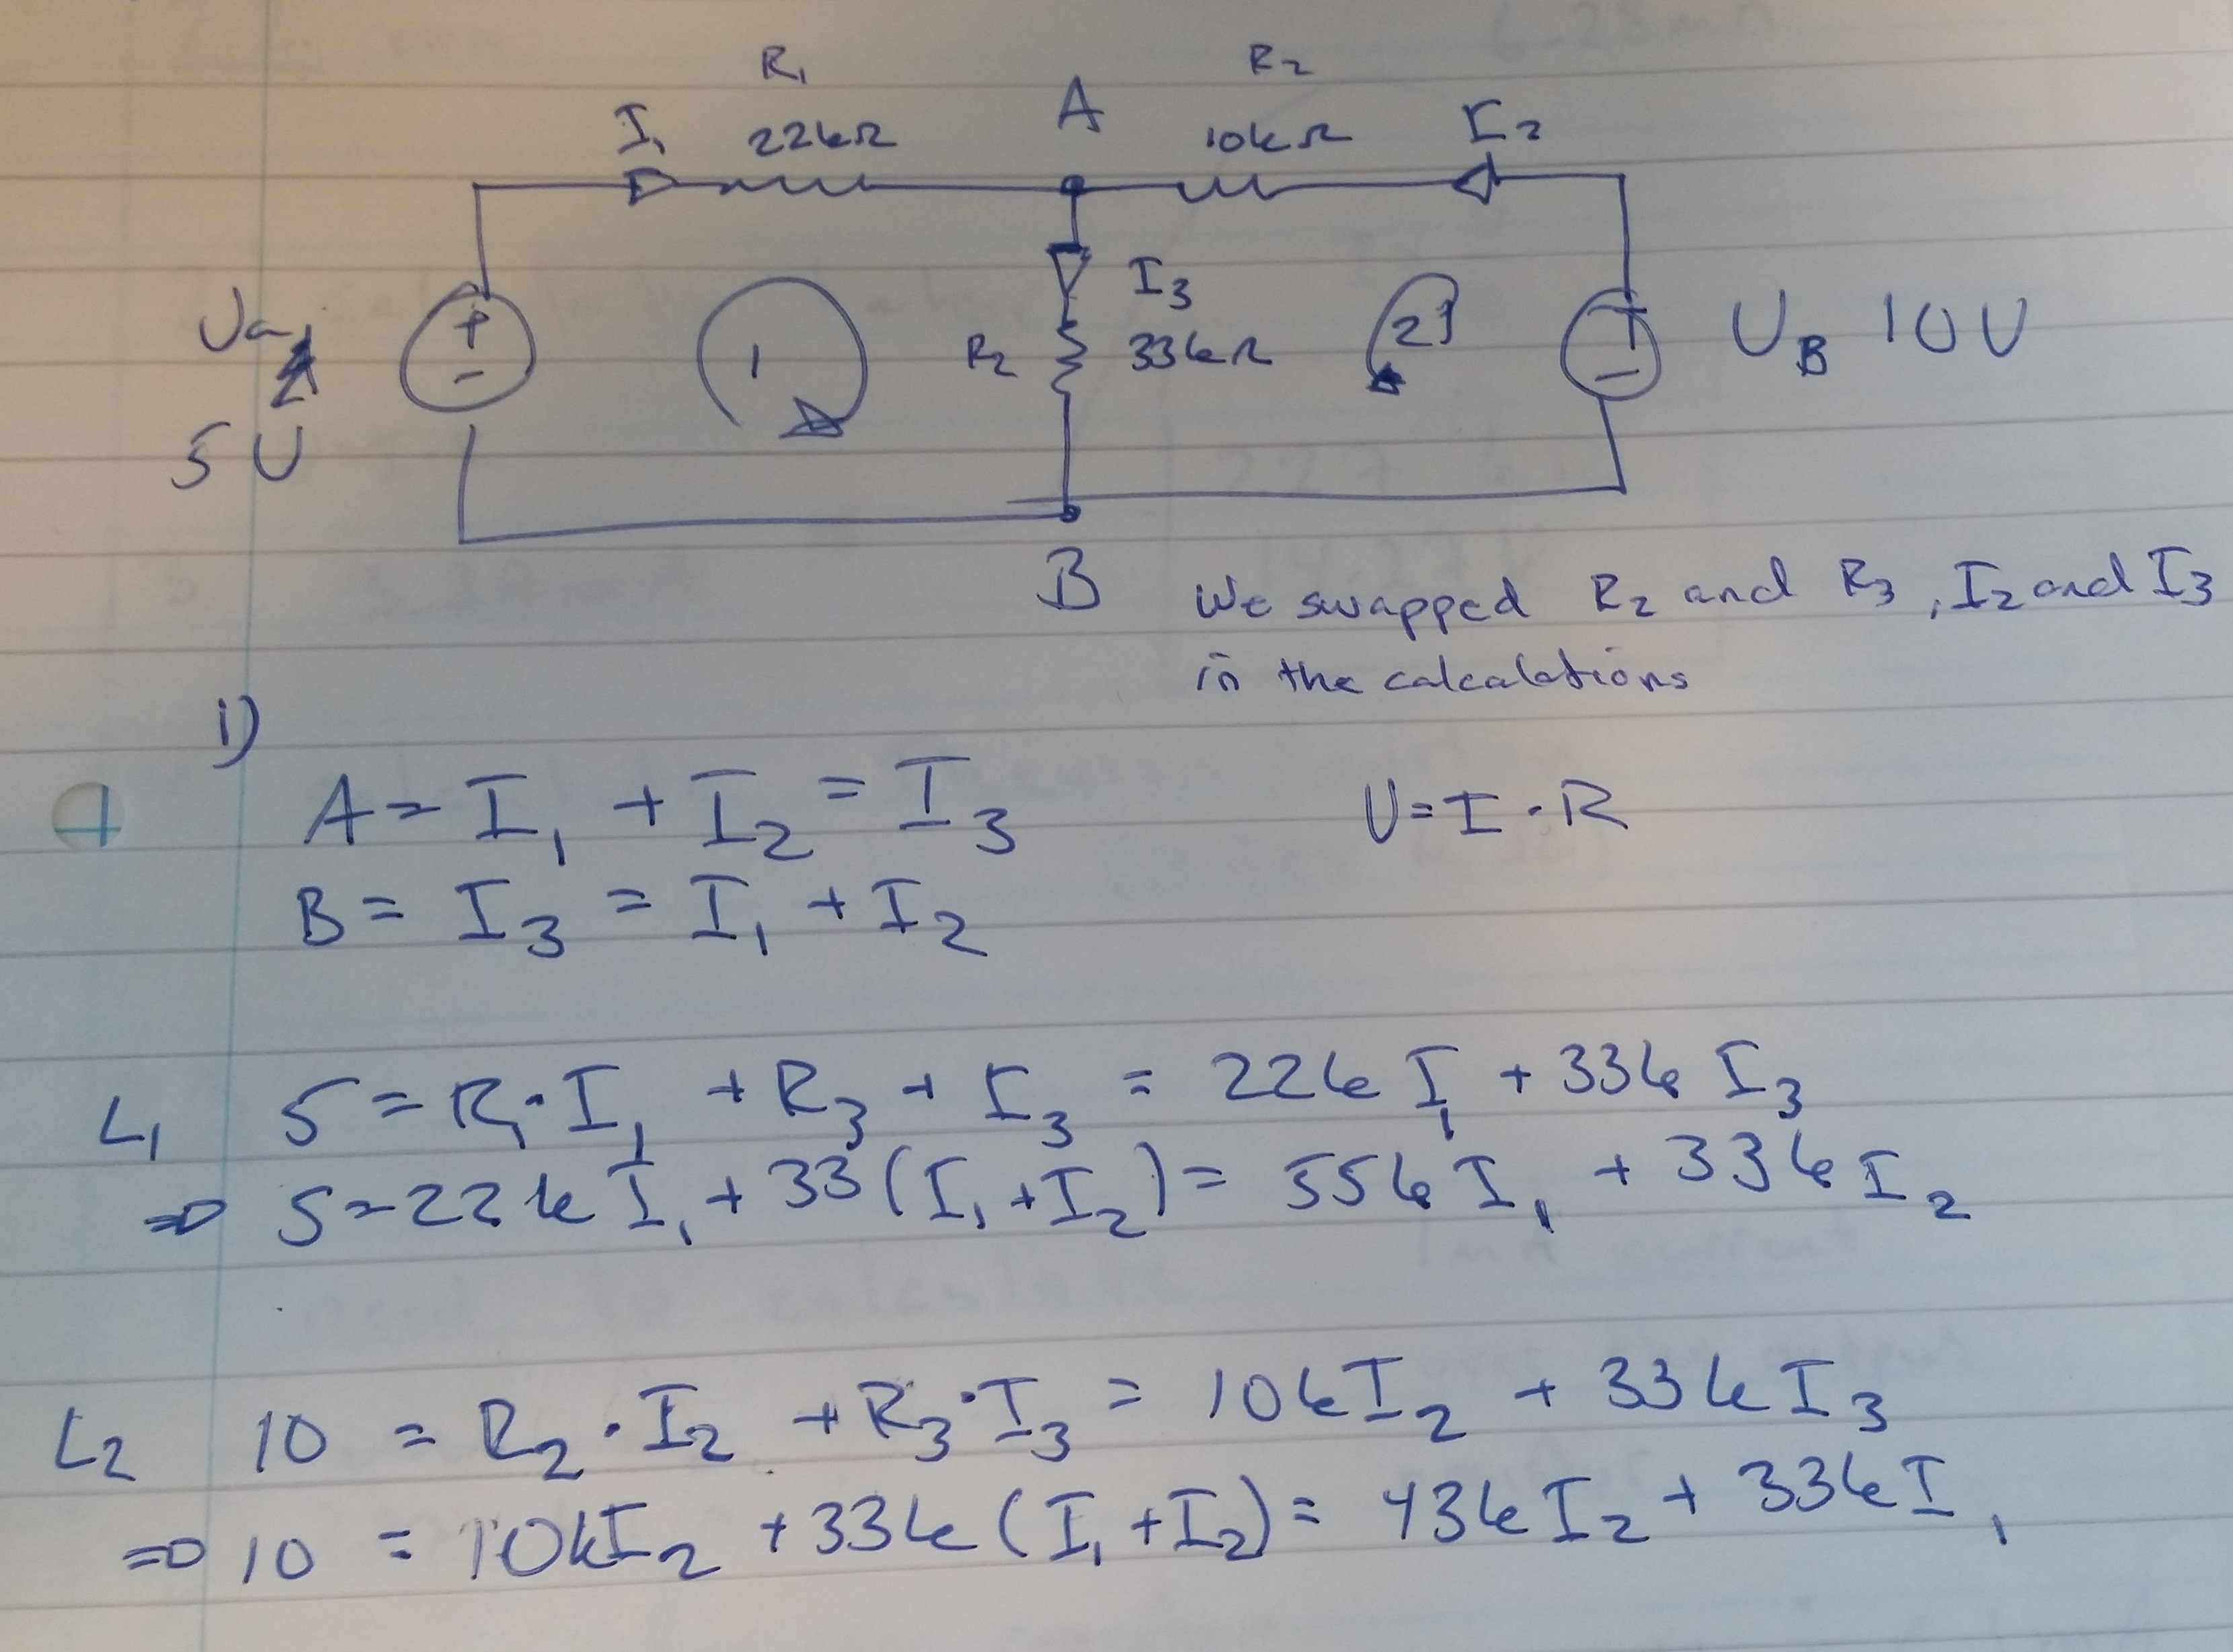 R₁ R₂
I₁ 22kΩ A 10kΩ I₂
I₃
Ua + 1 R₂ 33kΩ 2 + U_B 10V
- -
5V
B
We swapped R₂ and R₃, I₂ and I₃
in the calcalations
i)
A = I₁ + I₂ = I₃ U = I · R
B = I₃ = I₁ + I₂
L₁ 5 = R₁ · I₁ + R₃ + I₃ = 22k I₁ + 33k I₃
⇒ 5 = 22k I₁ + 33 (I₁ + I₂) = 55k I₁ + 33k I₂
L₂ 10 = R₂ · I₂ + R₃ · I₃ = 10k I₂ + 33k I₃
⇒ 10 = 10k I₂ + 33k (I₁ + I₂) = 43k I₂ + 33k I₁